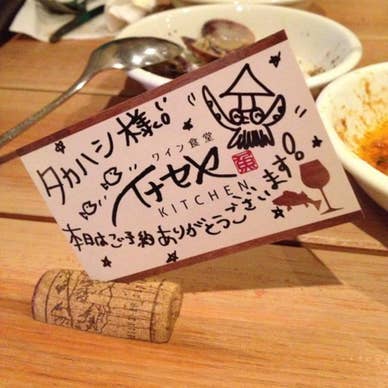 タカハシ様
ワイン食堂
イナセヤ
KITCHEN
本日はご予約ありがとうございます。